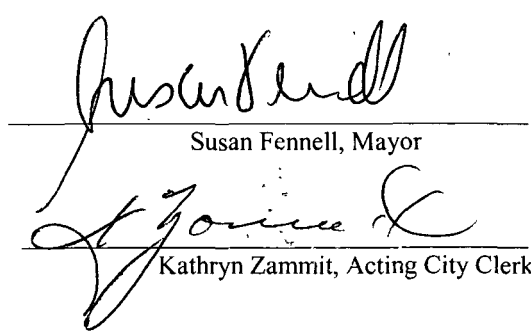 Susan Fennell
Susan Fennell, Mayor
Kathryn Zammit, Acting City Clerk